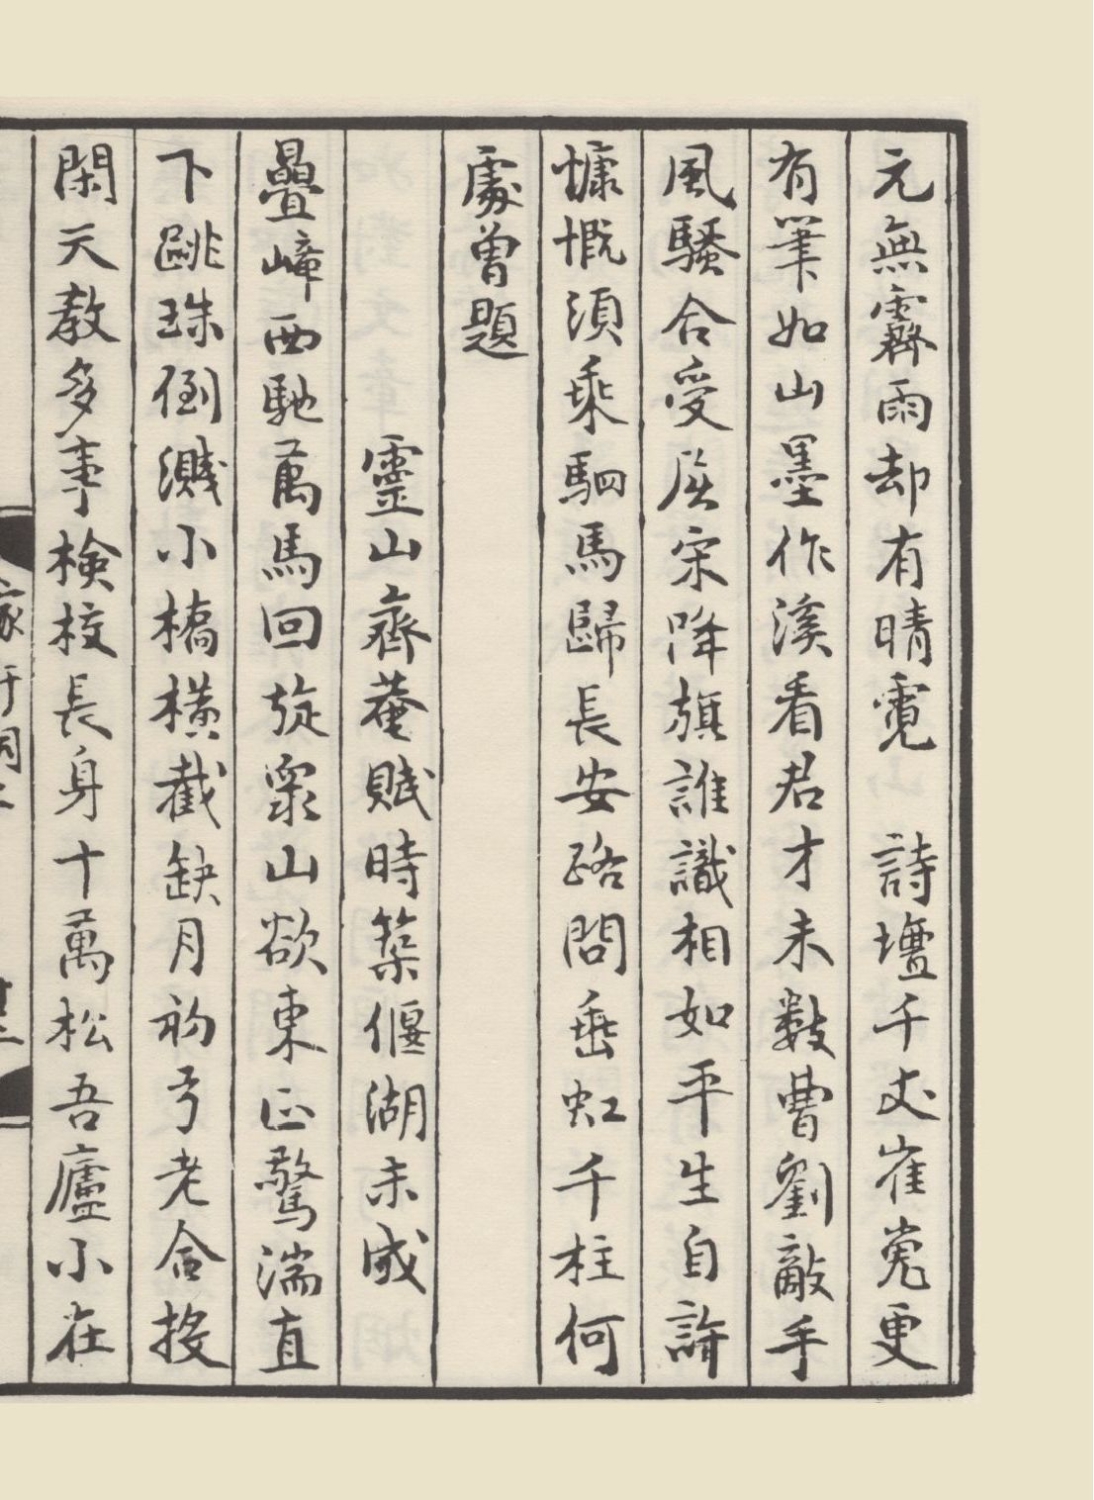 元無霽雨却有晴霓　詩壇千丈崔嵬更
有筆如山墨作溪看君才未數曹劉敵手
風騷合受屈宋降旗誰識相如平生自許
慷慨須乘駟馬歸長安路問垂虹千柱何
處曾題
靈山齊菴賦時築偃湖未成
疊嶂西馳萬馬回旋衆山欲東正驚湍直
下跳珠倒濺小橋橫截缺月初弓老合投
閑天教多事檢校長身十萬松吾廬小在